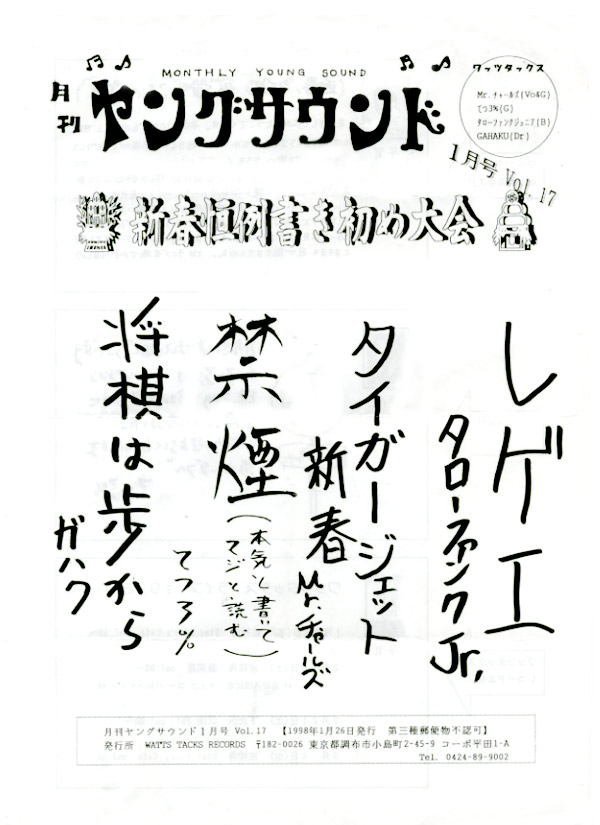 MONTHLY YOUNG SOUND
月刊
ヤングサウンド
ワッツタックス
Mr.チャールズ(Vo&G)
てつ3%(G)
タローファンクジュニア(B)
GAHAKU(Dr)
1月号 Vol.17
新春恒例書き初め大会
レゲエ
タローファンクJr.
タイガージェット
新春
Mr.チャールズ
禁煙
(本気と書いて
マジと読む)
てつ3%
将棋は歩から
ガハク
月刊ヤングサウンド1月号 Vol.17 【1998年1月26日発行 第三種郵便物不認可】
発行所 WATTS TACKS RECORDS 〒182-0026 東京都調布市小島町2-45-9 コーポ平田1-A
Tel. 0424-89-9002